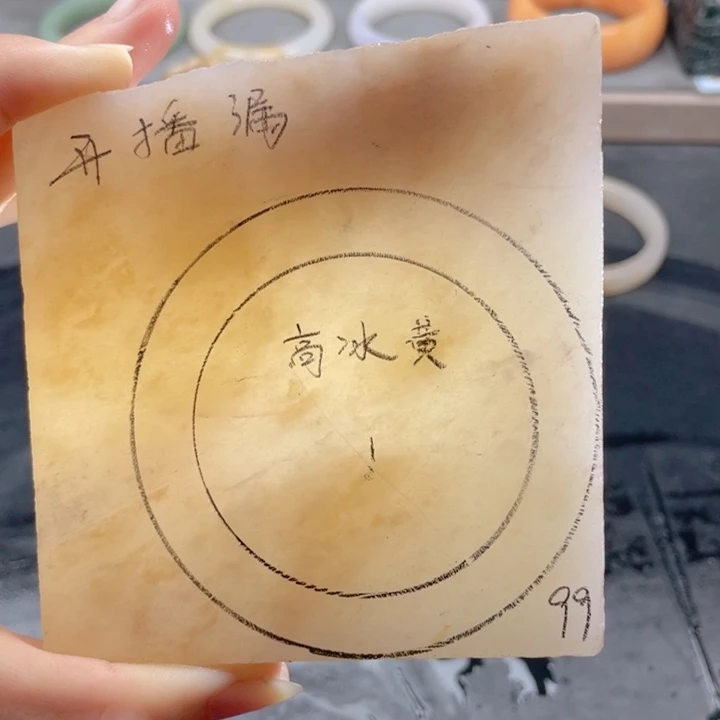 开播漏
高冰黄
99